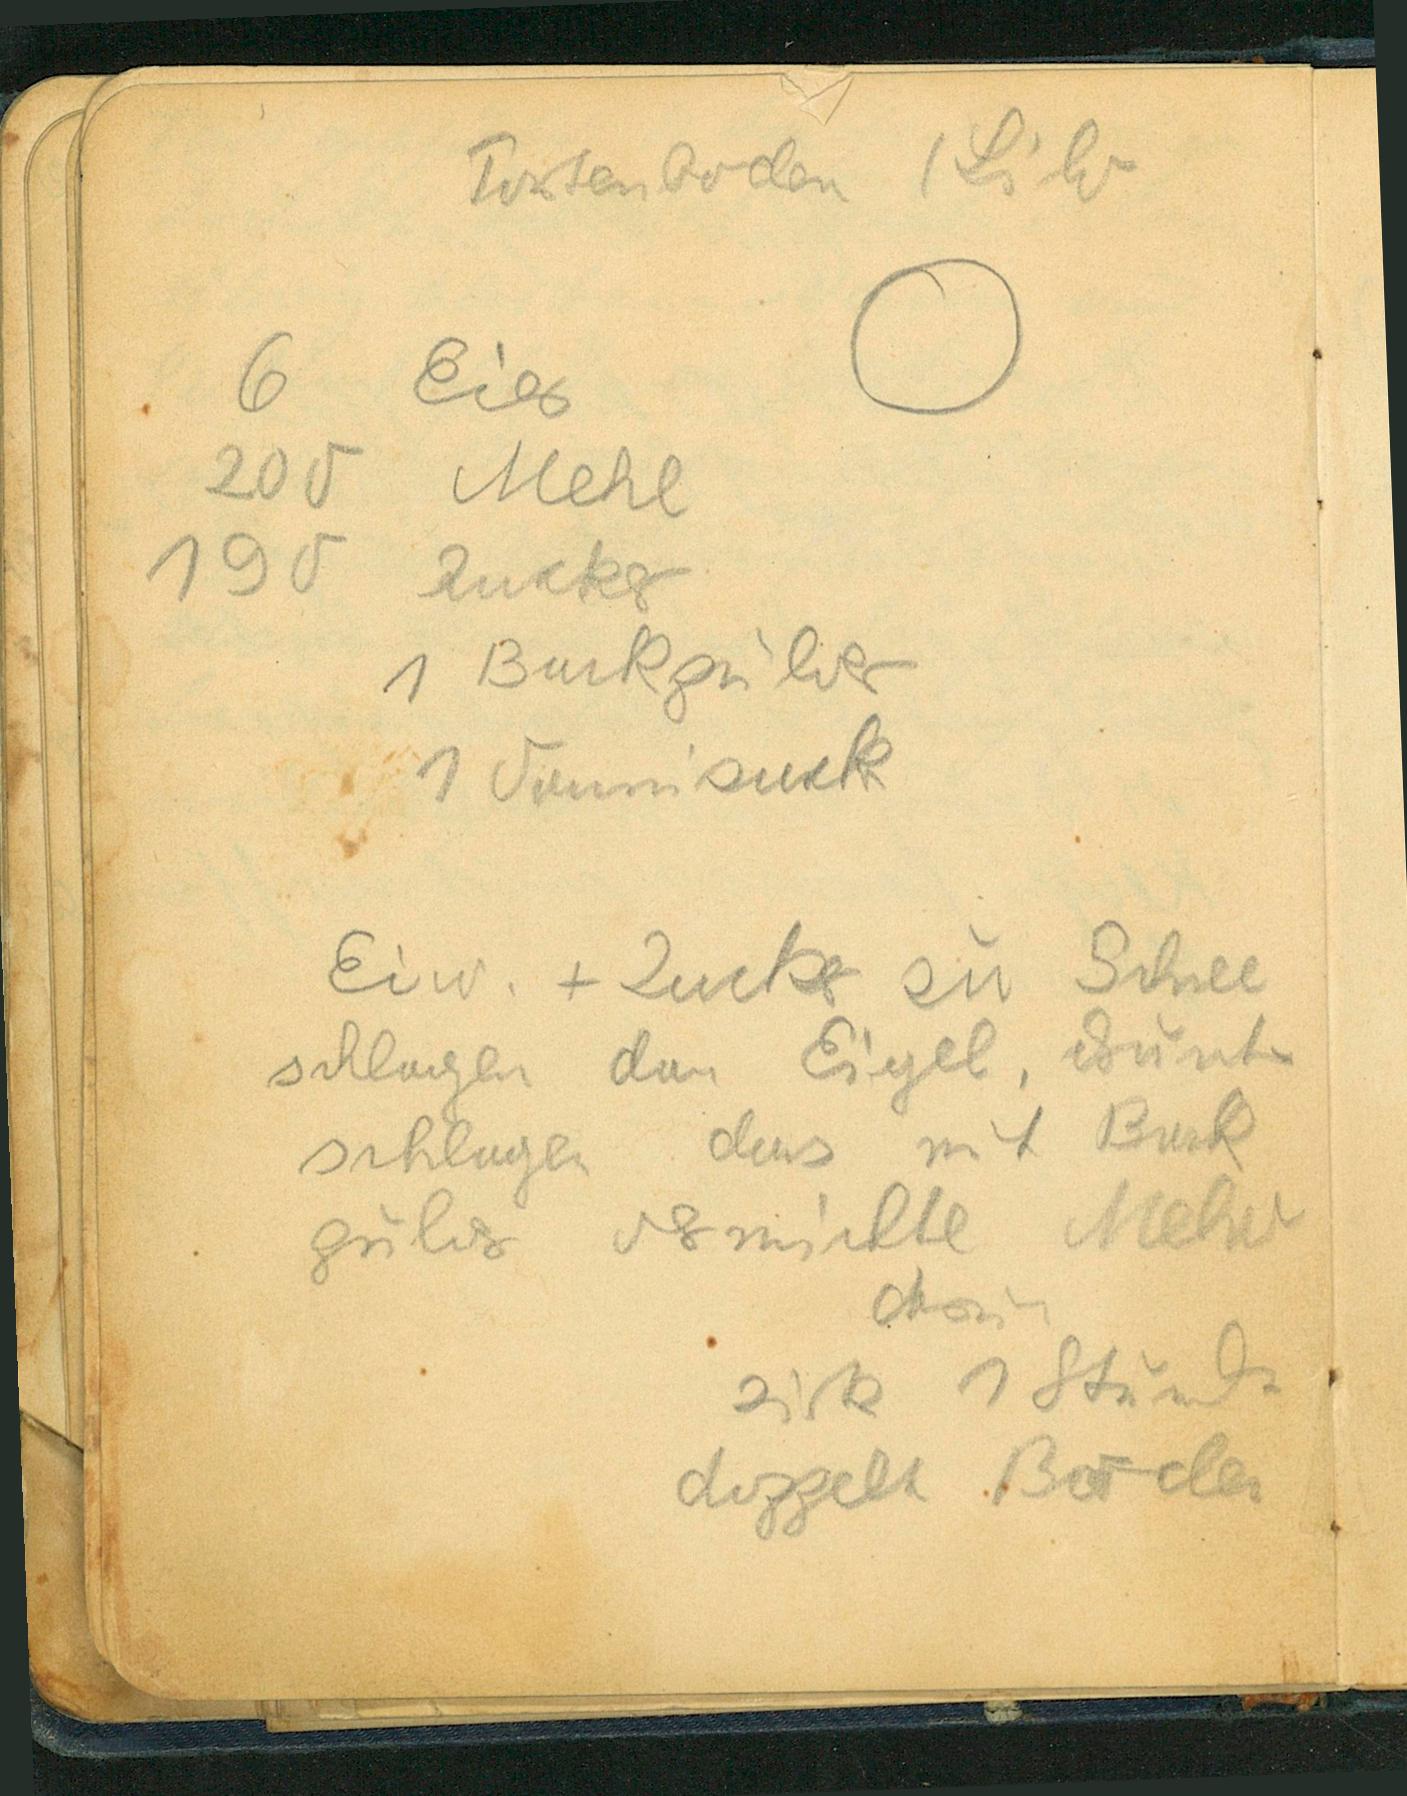 Tortenboden
6 Eier
200 Mehl
190 Zucker
1 Backpulver
1 Vannizuck
Eiw. + Zucker zu Schnee
schlagen dan Eigel,
schlagen das mit Back
pulver vermichte Mehl
drain
zirk 1 Stunde
doppelt Boden